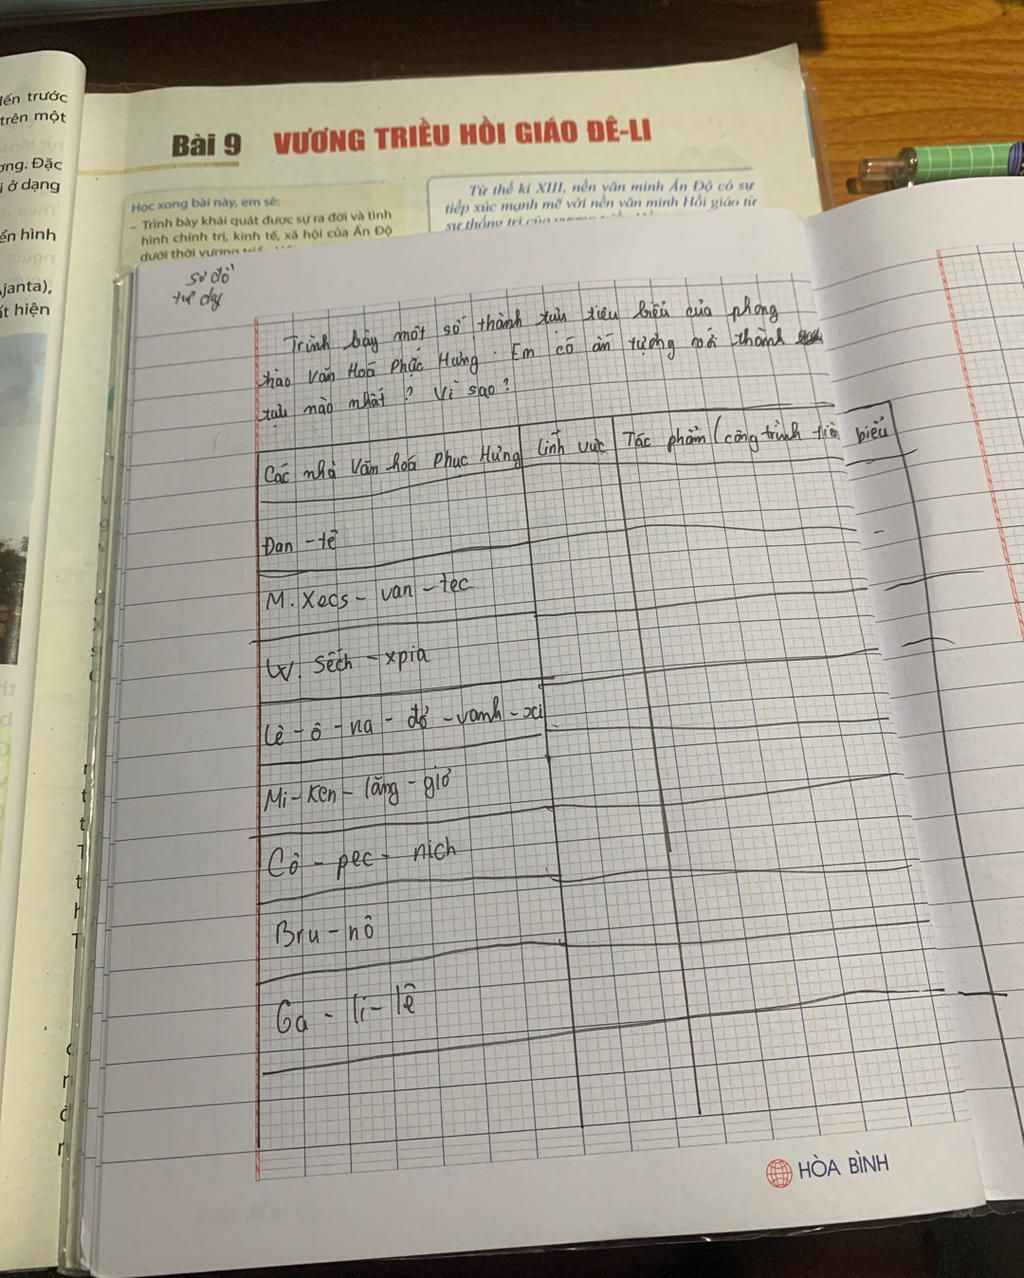 đến trước
trên một
ơng. Đặc
i ở dạng
ển hình
Ajanta),
ất hiện
Bài 9 VƯƠNG TRIỀU HỒI GIÁO ĐÊ-LI
Học xong bài này, em sẽ:
– Trình bày khái quát được sự ra đời và tình
hình chính trị, kinh tế, xã hội của Ấn Độ
dưới thời vương
Từ thế kỉ XIII, nền văn minh Ấn Độ có sự
tiếp xúc mạnh mẽ với nền văn minh Hồi giáo từ
sự thống trị của
Sơ đồ
tư duy
Trình bày một số thành tựu tiêu biểu của phong
trào Văn Hoá Phục Hưng. Em có ấn tượng với thành
tựu nào nhất? Vì sao?
Các nhà Văn hoá Phục Hưng Lĩnh vực Tác phẩm (công trình tiêu biểu
Đan - tê
M. Xecs - van - tec
W. Sếch - xpia
Lê - ô - na - đơ - vanh - xi
Mi - Ken - lăng - giơ
Cô - pec - nich
Bru - nô
Ga - li - lê
HÒA BÌNH